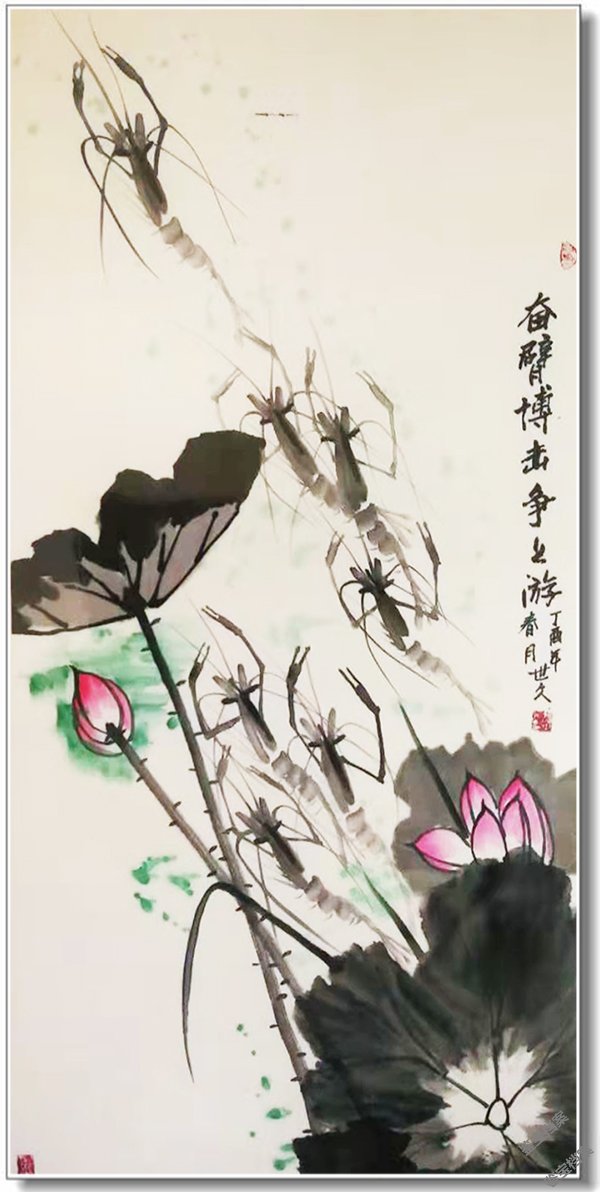 奋臂博击争上游
丁酉年
春月世久